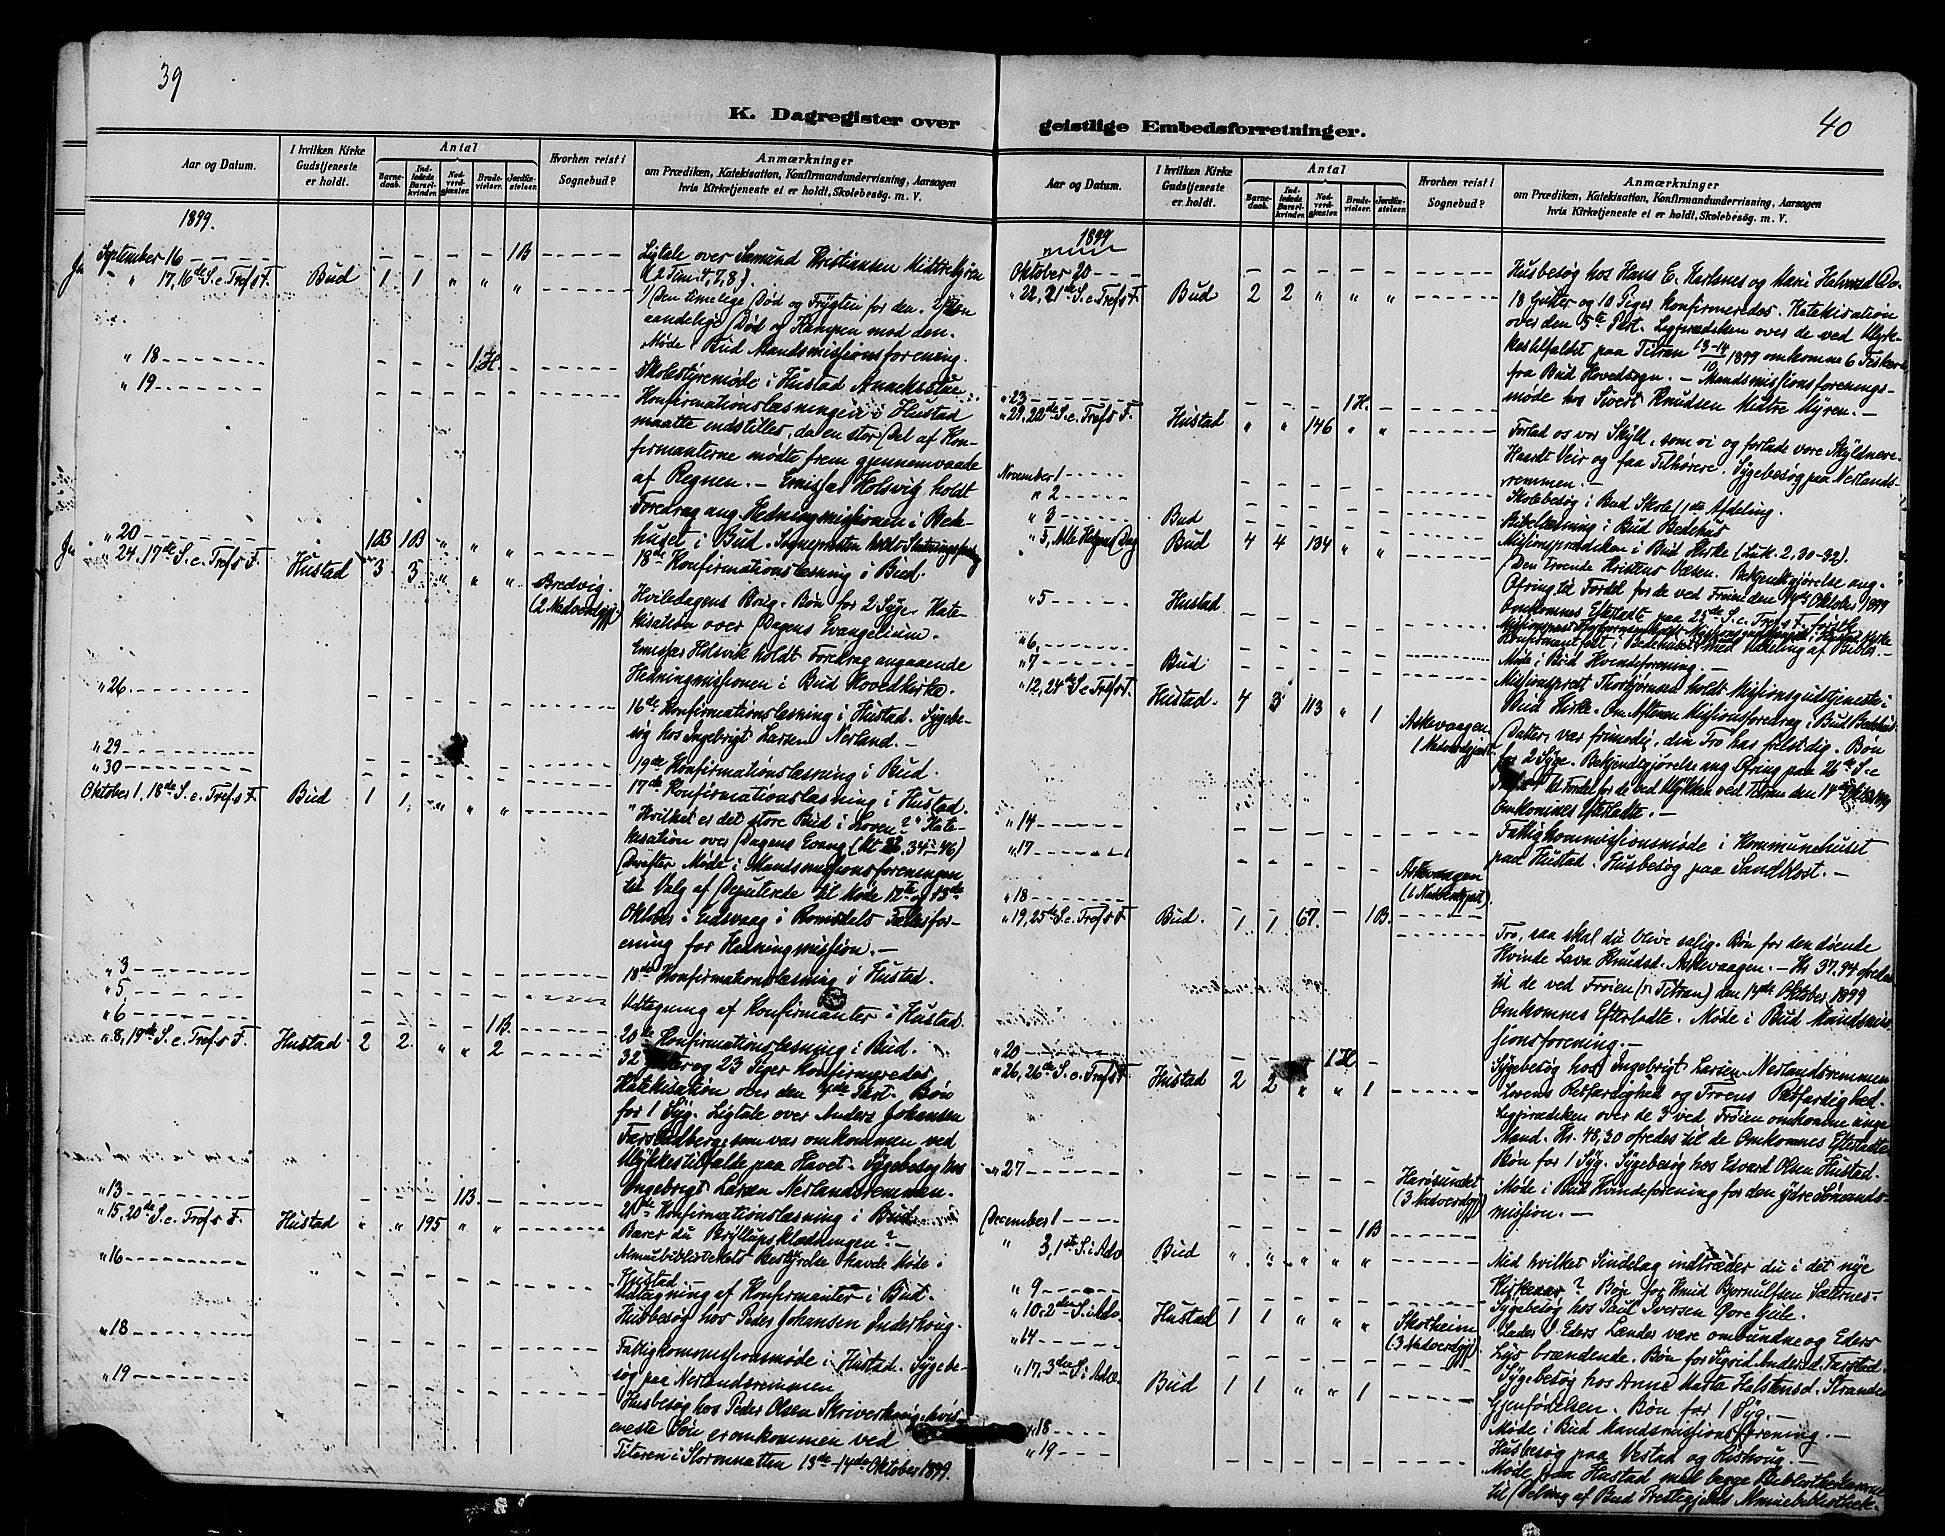 39
K. Dagregister over
Aar og Datum.
I hvilken Kirke Gudstjeneste er holdt.
Antal
Barnedaab.
Indledede Barselkvinder.
Nadverdgjæster.
Brudevielser.
Jordfæstelser.
Hvorhen reist i Sognebud?
Anmærkninger
om Prædiken, Katekisation, Konfirmandundervisning, Aarsagen
hvis Kirketjeneste ei er holdt, Skolebesøg. m. V.
1899.
September 16 1 B Ligtale over Samund Kristiansen Midtre Myren
" 17, 16de S. e. Tref. s F. Bud 1 1 " " " (2 Tim 4, 7, 8).
1) Den timelige Død og Frygten for den. 2) Den
aandelige Død og Kampen mod den.
Møde i Bud Mandsmissionsforening.
" 18 1 H. Skolestyremøde i Hustad Annekssogn
" 19 Konfirmationslæsningen i Hustad
maatte indstilles, da en stor Del af Kon-
firmanterne mødte frem gjennemvaade
af Regnen. – Emissær Holsvig holdt
Foredrag ang. Hedningmissionen i Bede-
huset i Bud. Sognepresten holdt
" 20 1B 1B " " " 18de Konfirmationslæsning i Bud.
" 24, 17de S. e. Tref. s F. Hustad 3 3 " " " Bredvig. (2 Nadverdgj.) Hviledagens Brug. Bøn for 2 Syge. Kate-
kisation over Dagens Evangelium.
Emissær Holsvik holdt Foredrag angaaende
Hedningmissionen i Bud Hovedkirke.
" 26 16de Konfirmationslæsning i Hustad. Sygebe-
søg hos Ingebrigt Larsen Nerland. –
" 29 19de Konfirmationslæsning i Bud.
" 30 17de Konfirmationslæsning i Hustad.
Oktober 1, 18de S. e. Tref. s F. Bud 1 1 " " " "Hvilket er det store Bud i Loven?" Kate-
kisation over Dagens Evang. (Mt 22, 34–46)
Derefter Møde i Mandsmissionsforeningen
til Valg af Deputerede til Møde 12te og 13de
Oktober i Eidsvaag i Romsdals Fællesfor-
ening for Hedningmission. –
" 3 18de Konfirmationslæsning i Hustad.
" 5 Udtagning af Konfirmanter i Hustad.
" 6 1 B. 20de Konfirmationslæsning i Bud.
" 8, 19de S. e. Tref. s F. Hustad 2 2 " " 2 32 Gutter og 23 Piger konfirmeredes
Katekisation over den 4de Part. Bøn
for 1 Syg. Ligtale over Anders Johansen
Farstadberg, som var omkommen ved
Ulykkestilfælde paa Havet. Sygebesøg hos
Ingebrigt Larsen Nerlandsremmen.
" 13 1 B. 20de Konfirmationslæsning i Bud.
" 15, 20de S. e. Tref. s F. Hustad " " 195 " " Bærer du Bryllupsklædningen? –
Almuebibliothekets Bestyrelse havde Møde.
" 16 Hustad –
Udtagning af Konfirmanter i Bud.
Husbesøg hos Peder Johansen Inderhoug.
" 18 Fattigkommissionsmøde i Hustad. Sygebe-
søg paa Nerlandsremmen
" 19 Husbesøg hos Peder Olsen Skriverhoug, hvis
eneste Søn er omkommen ved
Titeren i Stormnatten 13de–14de Oktober 1899.
40
geistlige Embedsforretninger.
Aar og Datum.
I hvilken Kirke Gudstjeneste er holdt.
Antal
Barnedaab.
Indledede Barselkvinder.
Nadverdgjæster.
Brudevielser.
Jordfæstelser.
Hvorhen reist i Sognebud?
Anmærkninger
om Prædiken, Katekisation, Konfirmandundervisning, Aarsagen
hvis Kirketjeneste ei er holdt, Skolebesøg. m. V.
1899
Oktober 20 Husbesøg hos Hans E. Karlsnes og Mari Halvorsd. Do.
" 22, 21de S. e. Tref. s F. Bud 2 2 " " " 18 Gutter og 10 Piger konfirmeredes. Katekisation
over den 5te Part. Ligprædiken over de ved Ulyk-
kestilfældet paa Titran 13–14/10 1899 omkomne 6 Fiskere
fra Bud Hovedsogn. – Mandsmissionsforenings-
" 23 1 H. møde hos Sivert Knudsen Midtre Myren. –
" 29, 22de S. e. Tref. s F. Hustad " " 146 " " Forlad os vor Skyld, som vi og forlade vore Skyldnere.
Haardt Veir og faa Tilhørere. Sygebesøg paa Nerlands-
November 1 remmen. –
" 2 Skolebesøg i Bud Skole 1ste Afdeling.
" 3 Bud Bibellæsning i Bud Bedehus
" 5, Alle Helgens Dag Bud 4 4 134 " " Missionsprædiken i Bud Kirke (Luk. 2, 30–32).
Den troende Kristens Væsen. Bekjentgjørelse ang.
Ofring til Fordel for de ved Frøien den 14de Oktober 1899
" 5 Hustad Omkomnes Efterladte paa 25de S. e. Tref. s F. førstk.
" 6, Konfirmantfest i Bedehuset med Uddeling af Bibler
" 7 Bud Møde i Bud Kvindeforening. –
" 12, 24de S. e. Tref. s F. Hustad 4 3 113 " 1 Askevaagen 1 Nadverdgjæst. Missionsprest Thorbjørnsen holdt Missionsgudstjeneste i
Bud Kirke. Om Aftenen Missionsforedrag i Bud Bedehus.
Datter, vær frimodig, din Tro har frelst dig. Bøn
for 2 Syge. Bekjendtgjørelse ang Ofring paa 26de S. e
Tref. s F til Fordel for de ved Ulykken ved Titran den 14de Okt 1899
Omkomnes Efterladte. –
" 14 Fattigkommissionsmøde i Kommunehuset
" 17 Askevaagen (1 Nadverdgjæst). paa Hustad. Husbesøg paa Sandblost. –
" 18
" 19, 25de S. e. Tref. s F. Bud. 1 1 67. – 1B. Tro, saa skal du blive salig. Bøn for den døende
Kvinde Lava Knudsd. Askevaagen. – Kr 37.94 ofredes
til de ved Frøien (v. Titran) den 14de Oktober 1899
Omkomnes Efterladte. Møde i Bud Mandsmis-
sionsforening. –
" 20 1 H. Sygebesøg hos Ingebrigt Larsen Nerlandsremmen
" 26, 26de S. e. Tref. s F. Hustad 2 2 " " 1 Lovens Retfærdighed og Troens Retfærdighed.
Ligprædiken over de 3 ved Frøien omkomne unge
Mænd. Kr. 48,30 ofredes til de Omkomnes Efterladte
" 27 Harøsundet (3 Nadverdgj.) Bøn for 1 Syg. Sygebesøg hos Edvard Olsen Hustad.
Møde i Bud Kvindeforening for den ydre Sømands-
mission. –
December 1 1 B
" 3, 1ste S. i Adv. Bud " " " " " Med hvilket Sindelag indtræder du i det nye
" 9 Kirkeaar? Bøn for Knud Bjørnulfsen Sæternes.
Sygebesøg hos Paul Iversen Øvre Gule.
" 10, 2den S. i Adv. Hustad 1 1 " " " Skotheim (3 Nadverdgj.) Lader Eders Lænder være ombundne og Eders
" 14 Lys brændende. Bøn for Sigrid Andersd. Farstad.
Sygebesøg hos Anne Marta Halstensd. Strande
" 17, 3die S. i Adv. Bud 1 1 " " 1 Gjenfødelsen. Bøn for 1 Syg. –
" 18 Møde i Bud Mandsmissionsforening. –
" 19 Husbesøg paa Vestad og Rishoug. –
Møde paa Hustad med begge Bibliothekarerne
til Deling af Bud Prestegjelds Almuebibliothek.